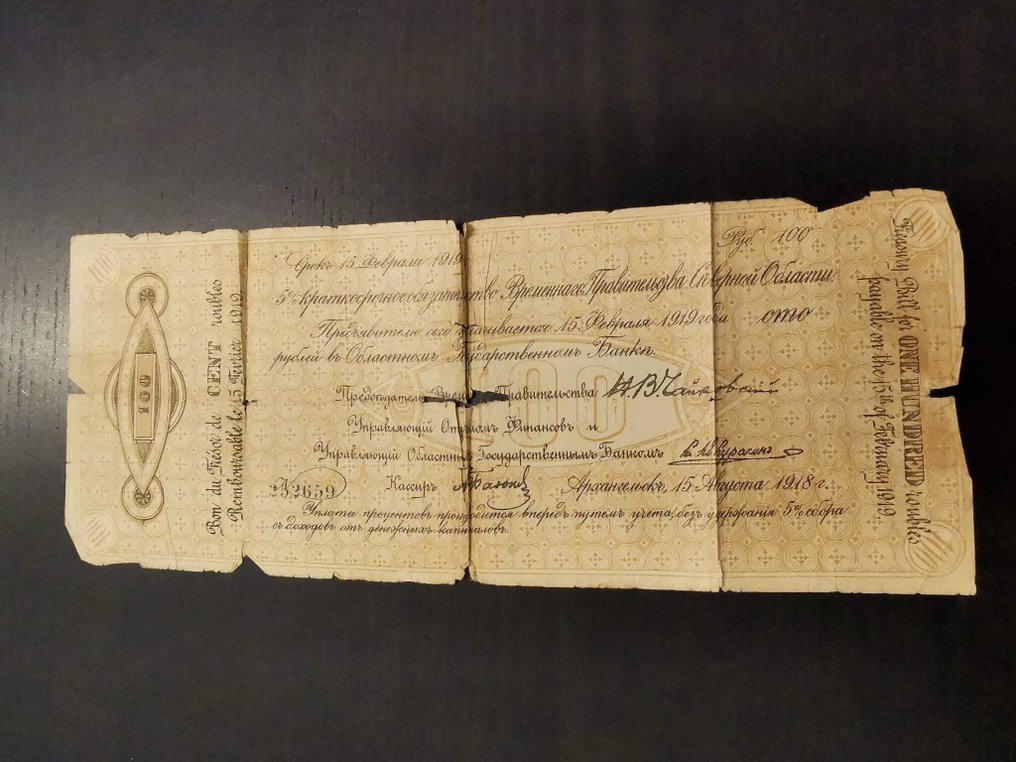 Bon du Trésor de CENT roubles
Remboursable le 15 Fevrier 1919
100
Срокъ 15 Февраля 1919
Руб. 100
5% краткосрочное обязательство Временнаго Правительства Сѣверной Области.
Предъявителю сего уплачивается 15 Февраля 1919 года сто
рублей въ Областномъ Государственномъ Банкѣ.
100
Предсѣдатель Правительства Н. В. Чайковскій
Управляющій Отдѣломъ Финансовъ и
Управляющій Областнымъ Государственнымъ Банкомъ
№ 32659
Кассиръ
Архангельскъ, 15 Августа 1918 г.
Уплата процентовъ производится впередъ путемъ учета, безъ удержанія 5% сбора
съ доходовъ отъ денежныхъ капиталовъ.
Treasury Bill for ONE HUNDRED roubles
payable on the 15th of February 1919